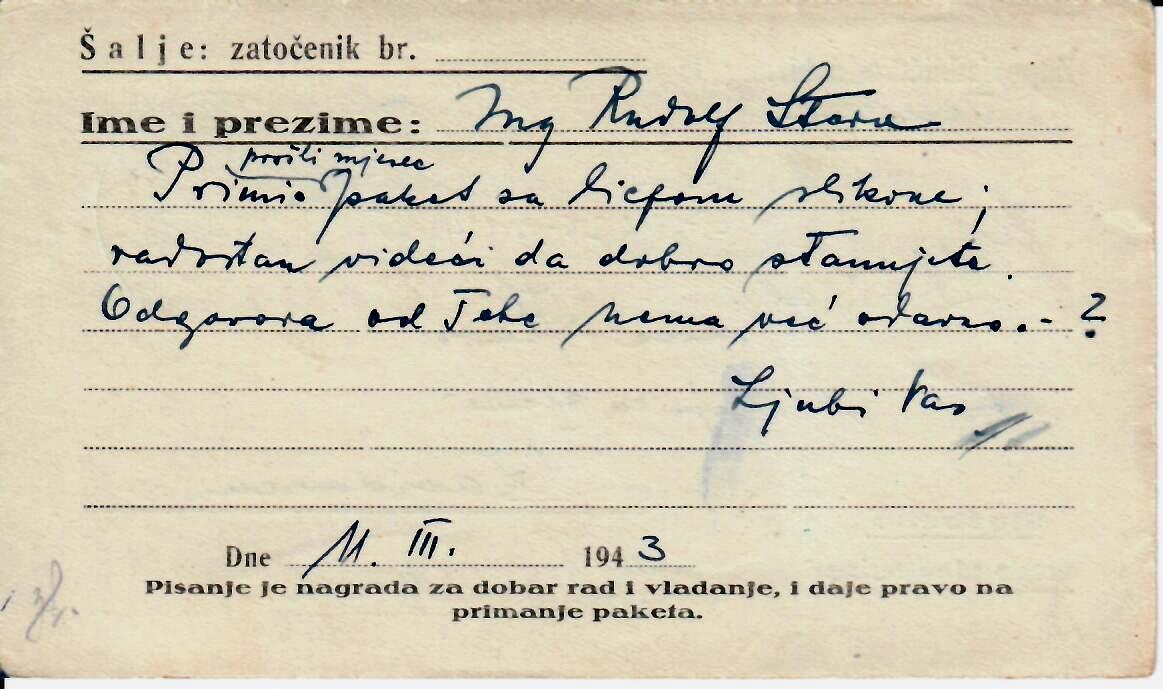 Šalje: zatočenik br.
Ime i prezime: Ing Rudolf
prošli mjesec
Primio paket sa lijepom slikom;
radostan videći da dobro stanujete.
Odgovora od Tebe nema već odavno.- ?
Ljubi Vas
Dne 11. III. 1943
Pisanje je nagrada za dobar rad i vladanje, i daje pravo na
primanje paketa.